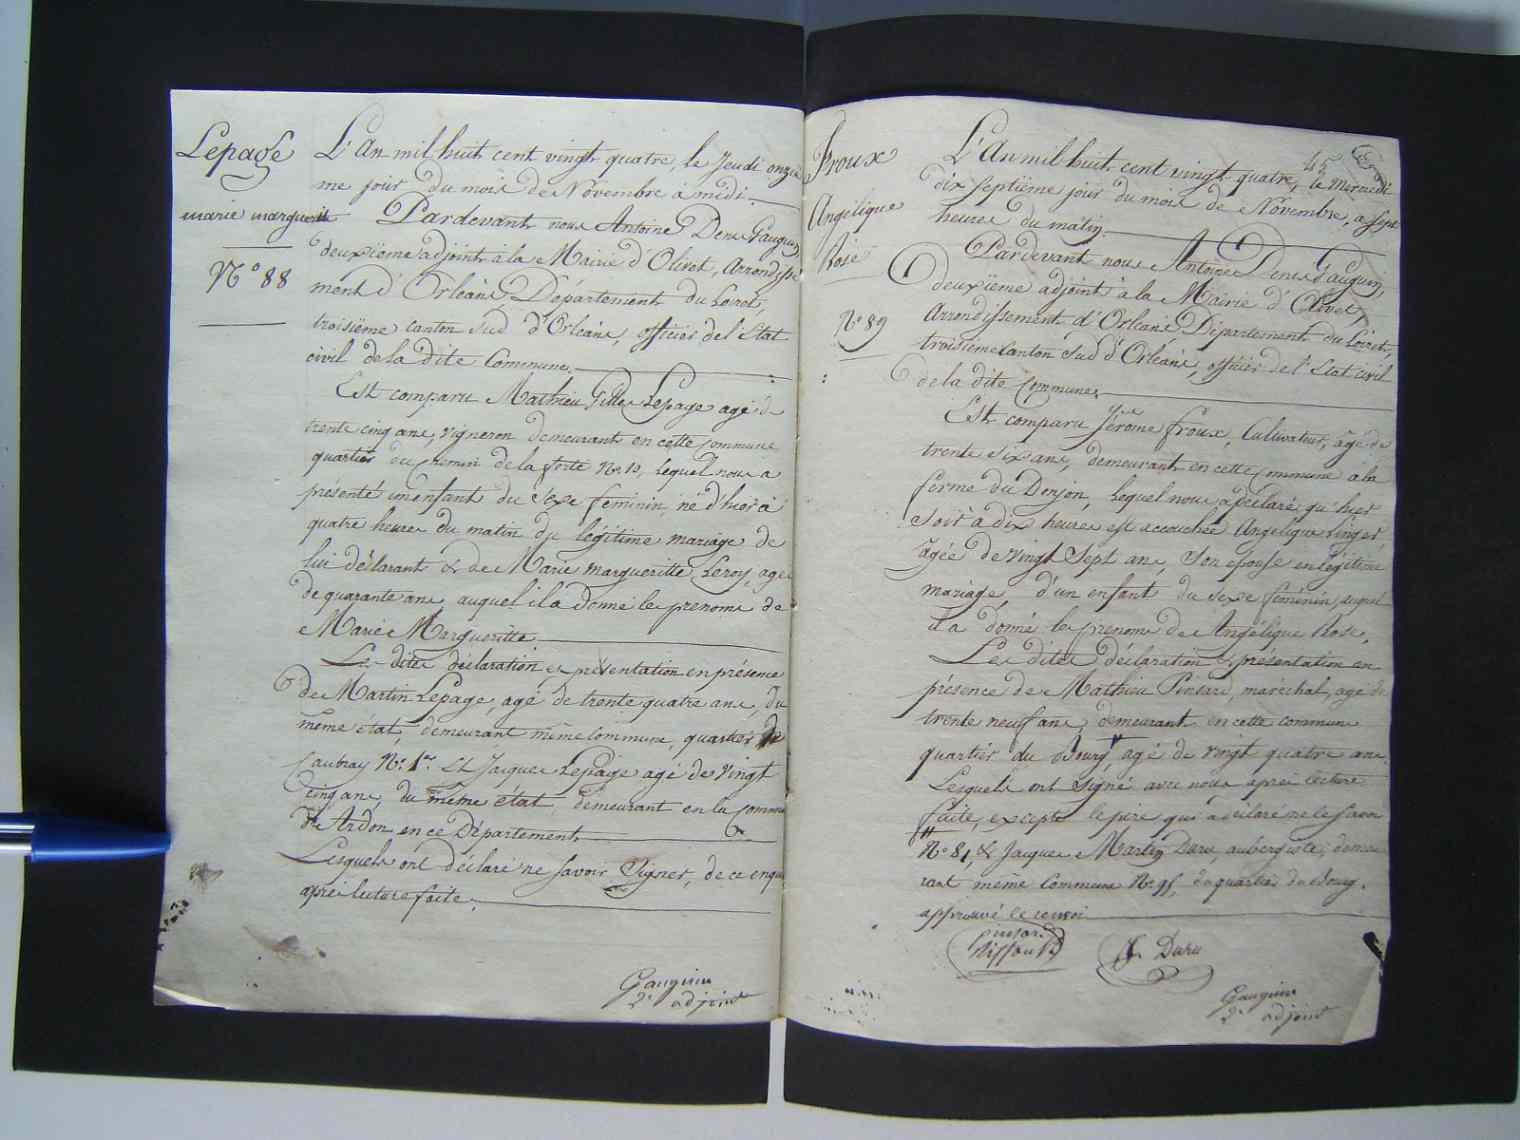 Lepage
marie marguerit
N.° 88
L'An mil huit cent vingt quatre, le Jeudi onziè
me jour du mois de Novembre à midi.
Pardevant nous Antoine Denis Gauguin,
deuxiëme adjoint à la Mairie d'Olivet, Arrondisse
ment d'Orléans Département du Loiret,
troisiëme canton sud d'Orléans, officier de l'Etat
civil de la dite Commune.
Est comparu Mathieu Gille Lepage agé de
trente cinq ans, vigneron demeurant en cette commune
quartier du chemin de la ferté N.° 10, lequel nous a
présenté un enfant du sexe féminin, né d'hier à
quatre heures du matin du légitime mariage de
lui déclarant & de Marie Margueritte Leroy, agée
de quarante ans auquel il a donné les prenoms de
Marie Margueritte
Les dites déclaration et présentation en présence
de Martin Lepage, agé de trente quatre ans, du
même état, demeurant même commune, quartier de
Caubray N.° 1.er Et Jacques Lepage agé de vingt
cinq ans, du même état, demeurant en la commune
de Ardon en ce Département
Lesquels ont déclaré ne savoir signer, de ce enquis
après lecture faite.
Gauguin
2.e adjoint
Froux
Angélique
Rose
N.° 89
45
L'An mil huit cent vingt quatre, le Mercredi
dix septiëme jour du mois de Novembre, à sept
heures du matin.
Pardevant nous Antoine Denis Gauguin,
deuxïeme adjoint à la Mairie d'Olivet,
Arrondissement d'Orléans Département du Loiret,
troisiëme Canton sud d'Orléans, officier de l'Etat civil
de la dite Commune.
Est comparu Jérôme froux, Cultivateur, âgé de
trente six ans, demeurant en cette commune a la
ferme du Donjon, lequel nous a déclaré qu'hier
soir à dix heures est accouchée Angélique
agée de vingt sept ans, son epouse en légitime
mariage, d'un enfant du sexe féminin, auquel
il a donné les prenoms de Angélique Rose.
Les dites déclaration et présentation en
présence de Mathieu Pinsard, maréchal, agé de
trente neuf ans, demeurant en cette commune
quartier du Bourg, agé de vingt quatre ans
Lesquels ont signé avec nous après lecture
faite, excepté le père qui a déclaré ne le savoir
N.° 81, & Jacques Martin Duru, aubergiste, demeu
rant même Commune N.° 95, du quartier du Bourg.
approuvé le renvoi
J. Duru
Gauguin
2.e adjoint